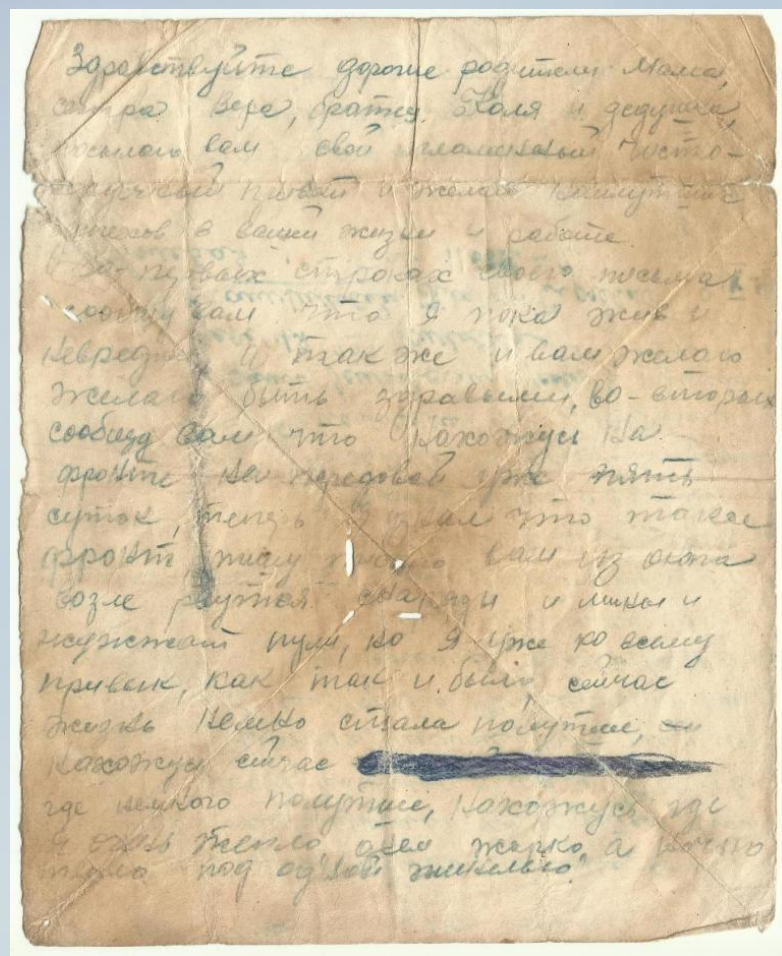 Здравствуйте дорогие родители Мама,
сестра Вера, братец Коля и дедушка,
посылаю вам свой пламенный чисто-
сердечный привет и желаю наилучших
успехов в вашей жизни и работе.
В первых строках своего письма
сообщу вам что я пока жив и
невредим и так же и вам желаю
желаю быть здравыми, во-вторых
сообщу вам что нахожусь на
фронте на передовой уже пять
суток, теперь узнал что такое
фронт пишу письмо вам из окопа
возле рвутся снаряды и мины и
жужжат пули, но я уже ко всему
привык, как так и было сейчас
жизнь немно стала полутше,
нахожусь сейчас
где немного полутше, нахожусь где
очень тепло днем жарко, а ночью
тепло под одной шинелью.